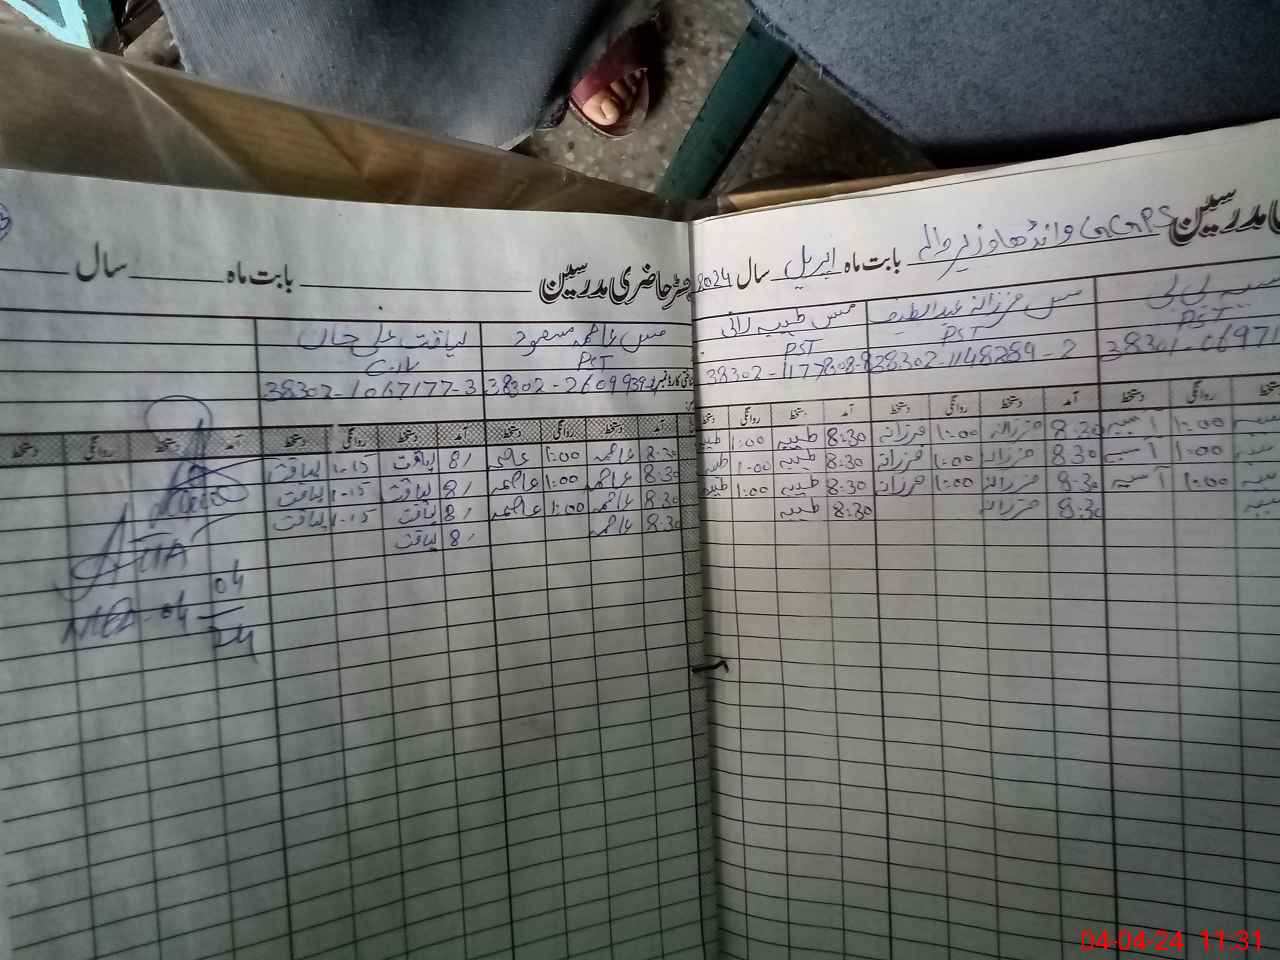 مدرسین GGPS وانڈھا وزیر والہ بابت ماہ اپریل سال 2024
بی بی مس فرزانہ عبدالطیف مس طیبہ رانی
PST PST PST
38302-1148289-2
آمد دستخط روانگی دستخط آمد دستخط روانگی دستخط
آسیہ 1:00 آسیہ 8:30 فرزانہ 1:00 فرزانہ 8:30 طیبہ 1:00
آسیہ 1:00 آسیہ 8:30 فرزانہ 1:00 فرزانہ 8:30 طیبہ 1:00
آسیہ 1:00 آسیہ 8:30 فرزانہ 1:00 فرزانہ 8:30 طیبہ 1:00
8:30 فرزانہ 8:30 طیبہ
حاضری مدرسین بابت ماہ سال
مس عاصمہ مسعود لیاقت علی خان
PST C-IV
38302-1067177-3
آمد دستخط روانگی دستخط آمد دستخط روانگی دستخط آمد دستخط روانگی دستخط
8:30 عاصمہ 1:00 عاصمہ 8/ لیاقت 1-15 لیاقت
8:30 عاصمہ 1:00 عاصمہ 8/ لیاقت 1-15 لیاقت
8:30 عاصمہ 1:00 عاصمہ 8/ لیاقت 1-15 لیاقت
8:30 عاصمہ 8/ لیاقت
04-04-24 11:31